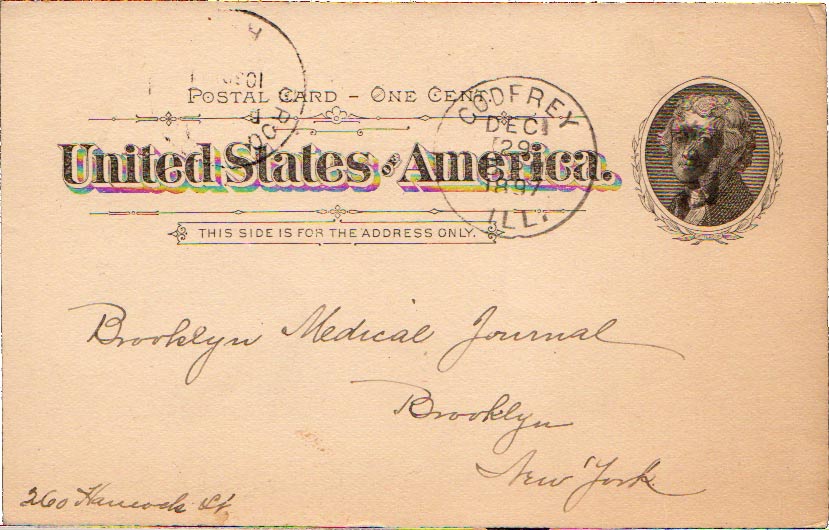 POSTAL CARD – ONE CENT.
United States OF America.
THIS SIDE IS FOR THE ADDRESS ONLY.
GODFREY
DEC
29
1897
ILL.
Brooklyn Medical Journal
Brooklyn
New York
260 Hancock St.